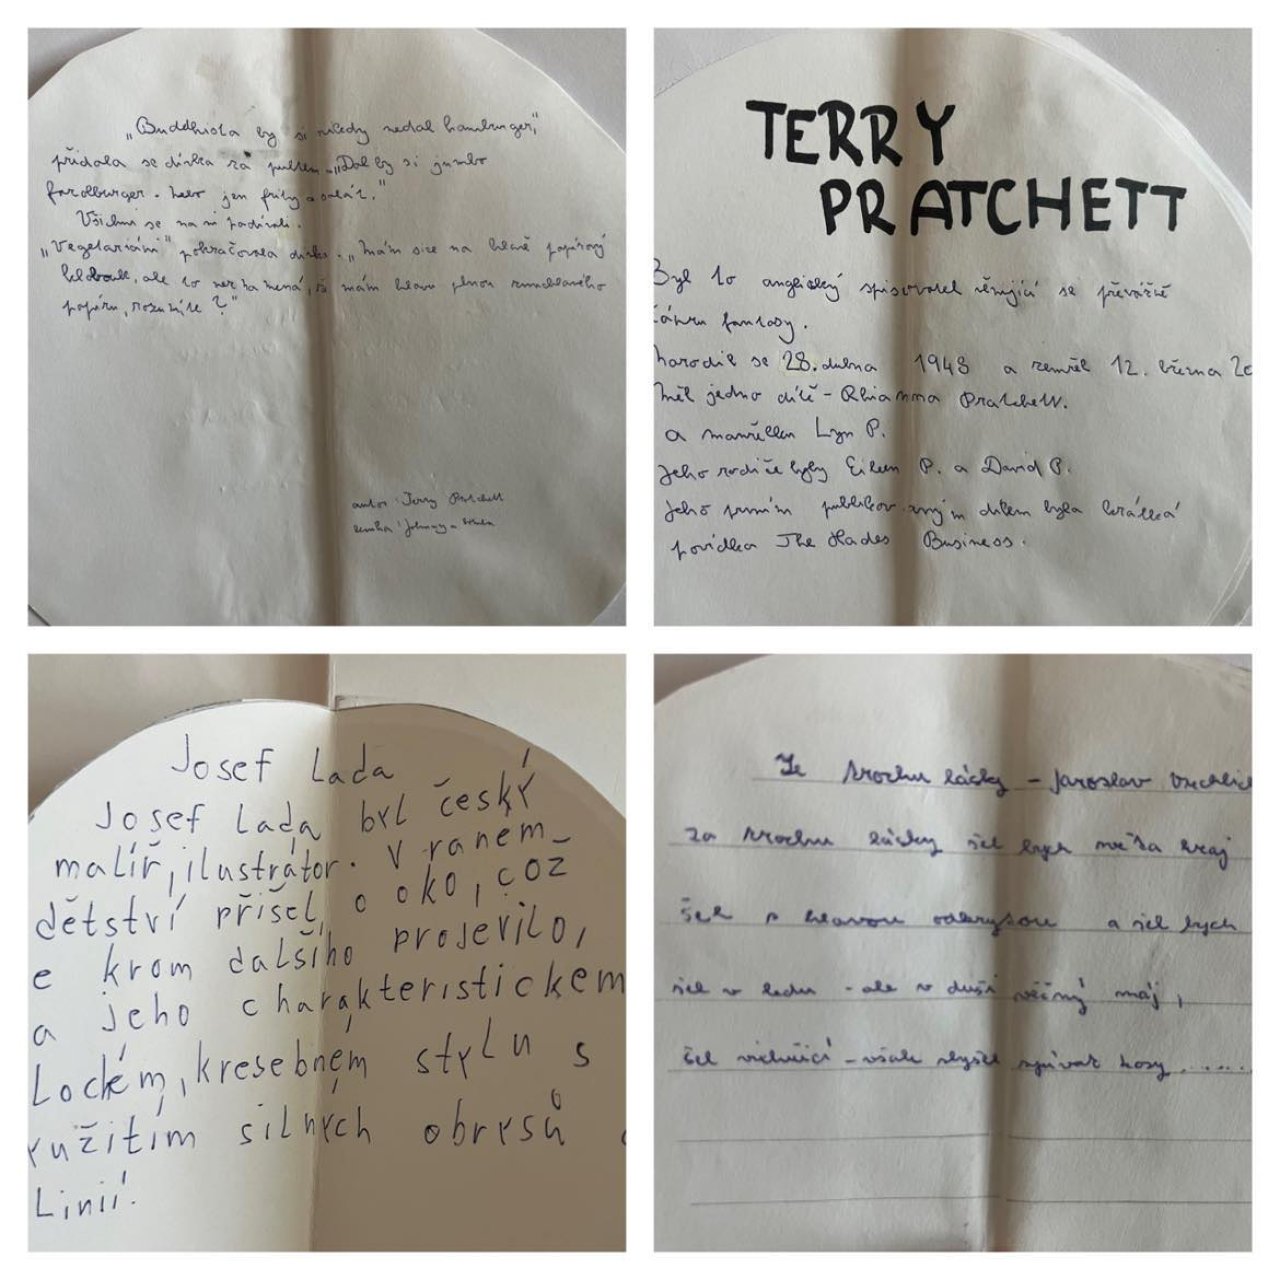 „Buddhista by si nikdy nedal hamburger,"
přidala se dívka za pultem. „Dal by si jumbo
farolburger. Nebo jen fritky a salát."
Všichni se na ni podívali.
„Vegetariáni" pokračovala dívka. „Mám sice na hlavě papírový
klobouk, ale to neznamená, že mám hlavu plnou zmuchlaného
papíru, rozumíte?"
autor: Terry Pratchett
kniha: Johnny a
TERRY
PRATCHETT
Byl to anglický spisovatel věnující se převážně
žánru fantasy.
Narodil se 28. dubna 1948 a zemřel 12. března 20
Měl jedno dítě - Rhianna Pratchett.
a manželku Lyn P.
Jeho rodiče byly Eileen P. a David P.
Jeho prvním publikovaným dílem byla krátká
povídka The Hades Business.
Josef Lada
Josef Lada byl český
malíř, ilustrátor. V raném
dětství přišel o oko, což
e krom dalšího projevilo,
a jeho charakteristickém
Lockém, kresebném stylu s
yužitím silných obrysů a
Linií.
Za trochu lásky - Jaroslav Vrchlic
za trochu lásky šel bych světa kraj
šel s hlavou odkrytou a šel bych
šel v ledu - ale v duši věčný máj,
šel vichřicí - však slyšel zpívat kosy......